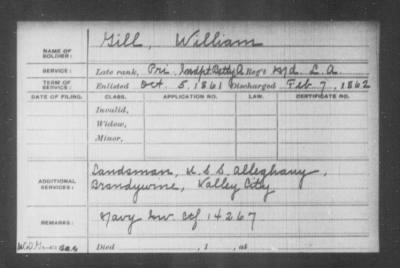 NAME OF SOLDIER: Gill, William
SERVICE: Late rank, Pri Indpt Batty A Reg't Md. L. A.
TERM OF SERVICE: Enlisted Oct 5, 1861 Discharged Feb 7, 1862
DATE OF FILING. CLASS. APPLICATION NO. LAW. CERTIFICATE NO.
Invalid,
Widow,
Minor,
ADDITIONAL SERVICES: Landsman, U.S.S. Alleghany,
Brandywine, Valley City
REMARKS: Navy Inv ctf 14267
Died , 1 , at